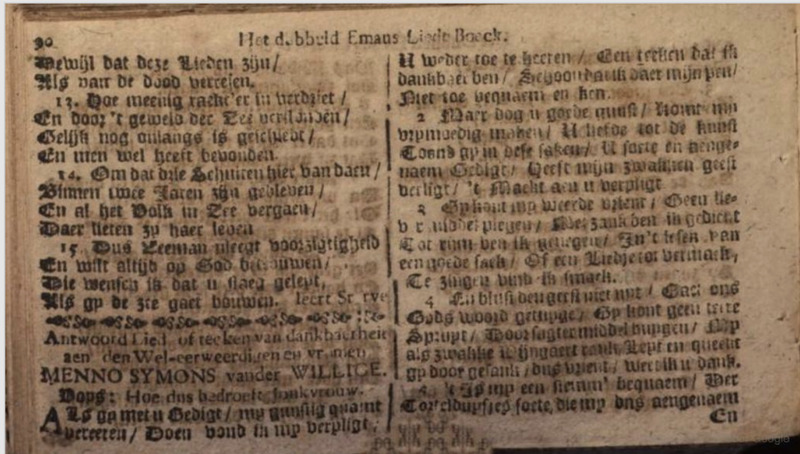 90 Het dubbeld Emaus Liede Boeck.
Dewijl dat deze Lieden zijn/
Als van de dood verresen.
13. Hoe meenig raekt'er in verdriet /
En door 't geweld der Zee
Gelijk nog onlangs is geschiedt/
En men wel heeft bevonden.
14. Om dat drie Schuiten hier van daen/
Binnen twee Jaren zijn gebleven/
En al het Volk in Zee vergaen/
Daer lieten zy haer leven
15. Dus Zeeman pleegt voorzigtigheid
En wilt altijd op God betrouwen/
Die wensch ik dat u staeg geleyt,
Als gy de zee gaet bouwen. leert
Antwoord Lied, of teeken van dankbaerheit
aen den Wel-eerweerdigen en vromen
MENNO SYMONS vander WILLIGE.
Voys: Hoe dus bedroeft Jonkvrouw.
Als gy met u Gedigt / my gunstig quamt
vereeren / Doen vond ik my verpligt /
U weder toe te keeren / Een teeken dat ik
dankbaer ben / Schoon dat ik daer mijn pen/
Niet toe bequaem en ken.
2 Maer dog u goede gunst / komt my
vrymoedig maken / U liefde tot de kunst
Toond gy in dese saken / U soete en aenge-
naem Gedigt / Heeft mijn zwakken geest
verligt / 't Macht aen u verpligt
3 Gy kont my weerde vrient / Geen
middel plegen / ik gedicht
Tot ben ik genegen / In't lesen van
een goede saek / Of een Liedje tot vermaek,
Te zingen vind ik smaek.
4 En blust den geest niet uyt / Gaet ons
Gods woord getuyge / Gy kont geen
Spruyt / Door sagter middel buygen / My
als zwakke wijngaert rank, Lept en queekt
gy door gesank / dus vrient / weet ik u dank.
5 't Is my een stemm' bequaem / Der
Tortelduyfjes soete, die my dus aengenaem
En